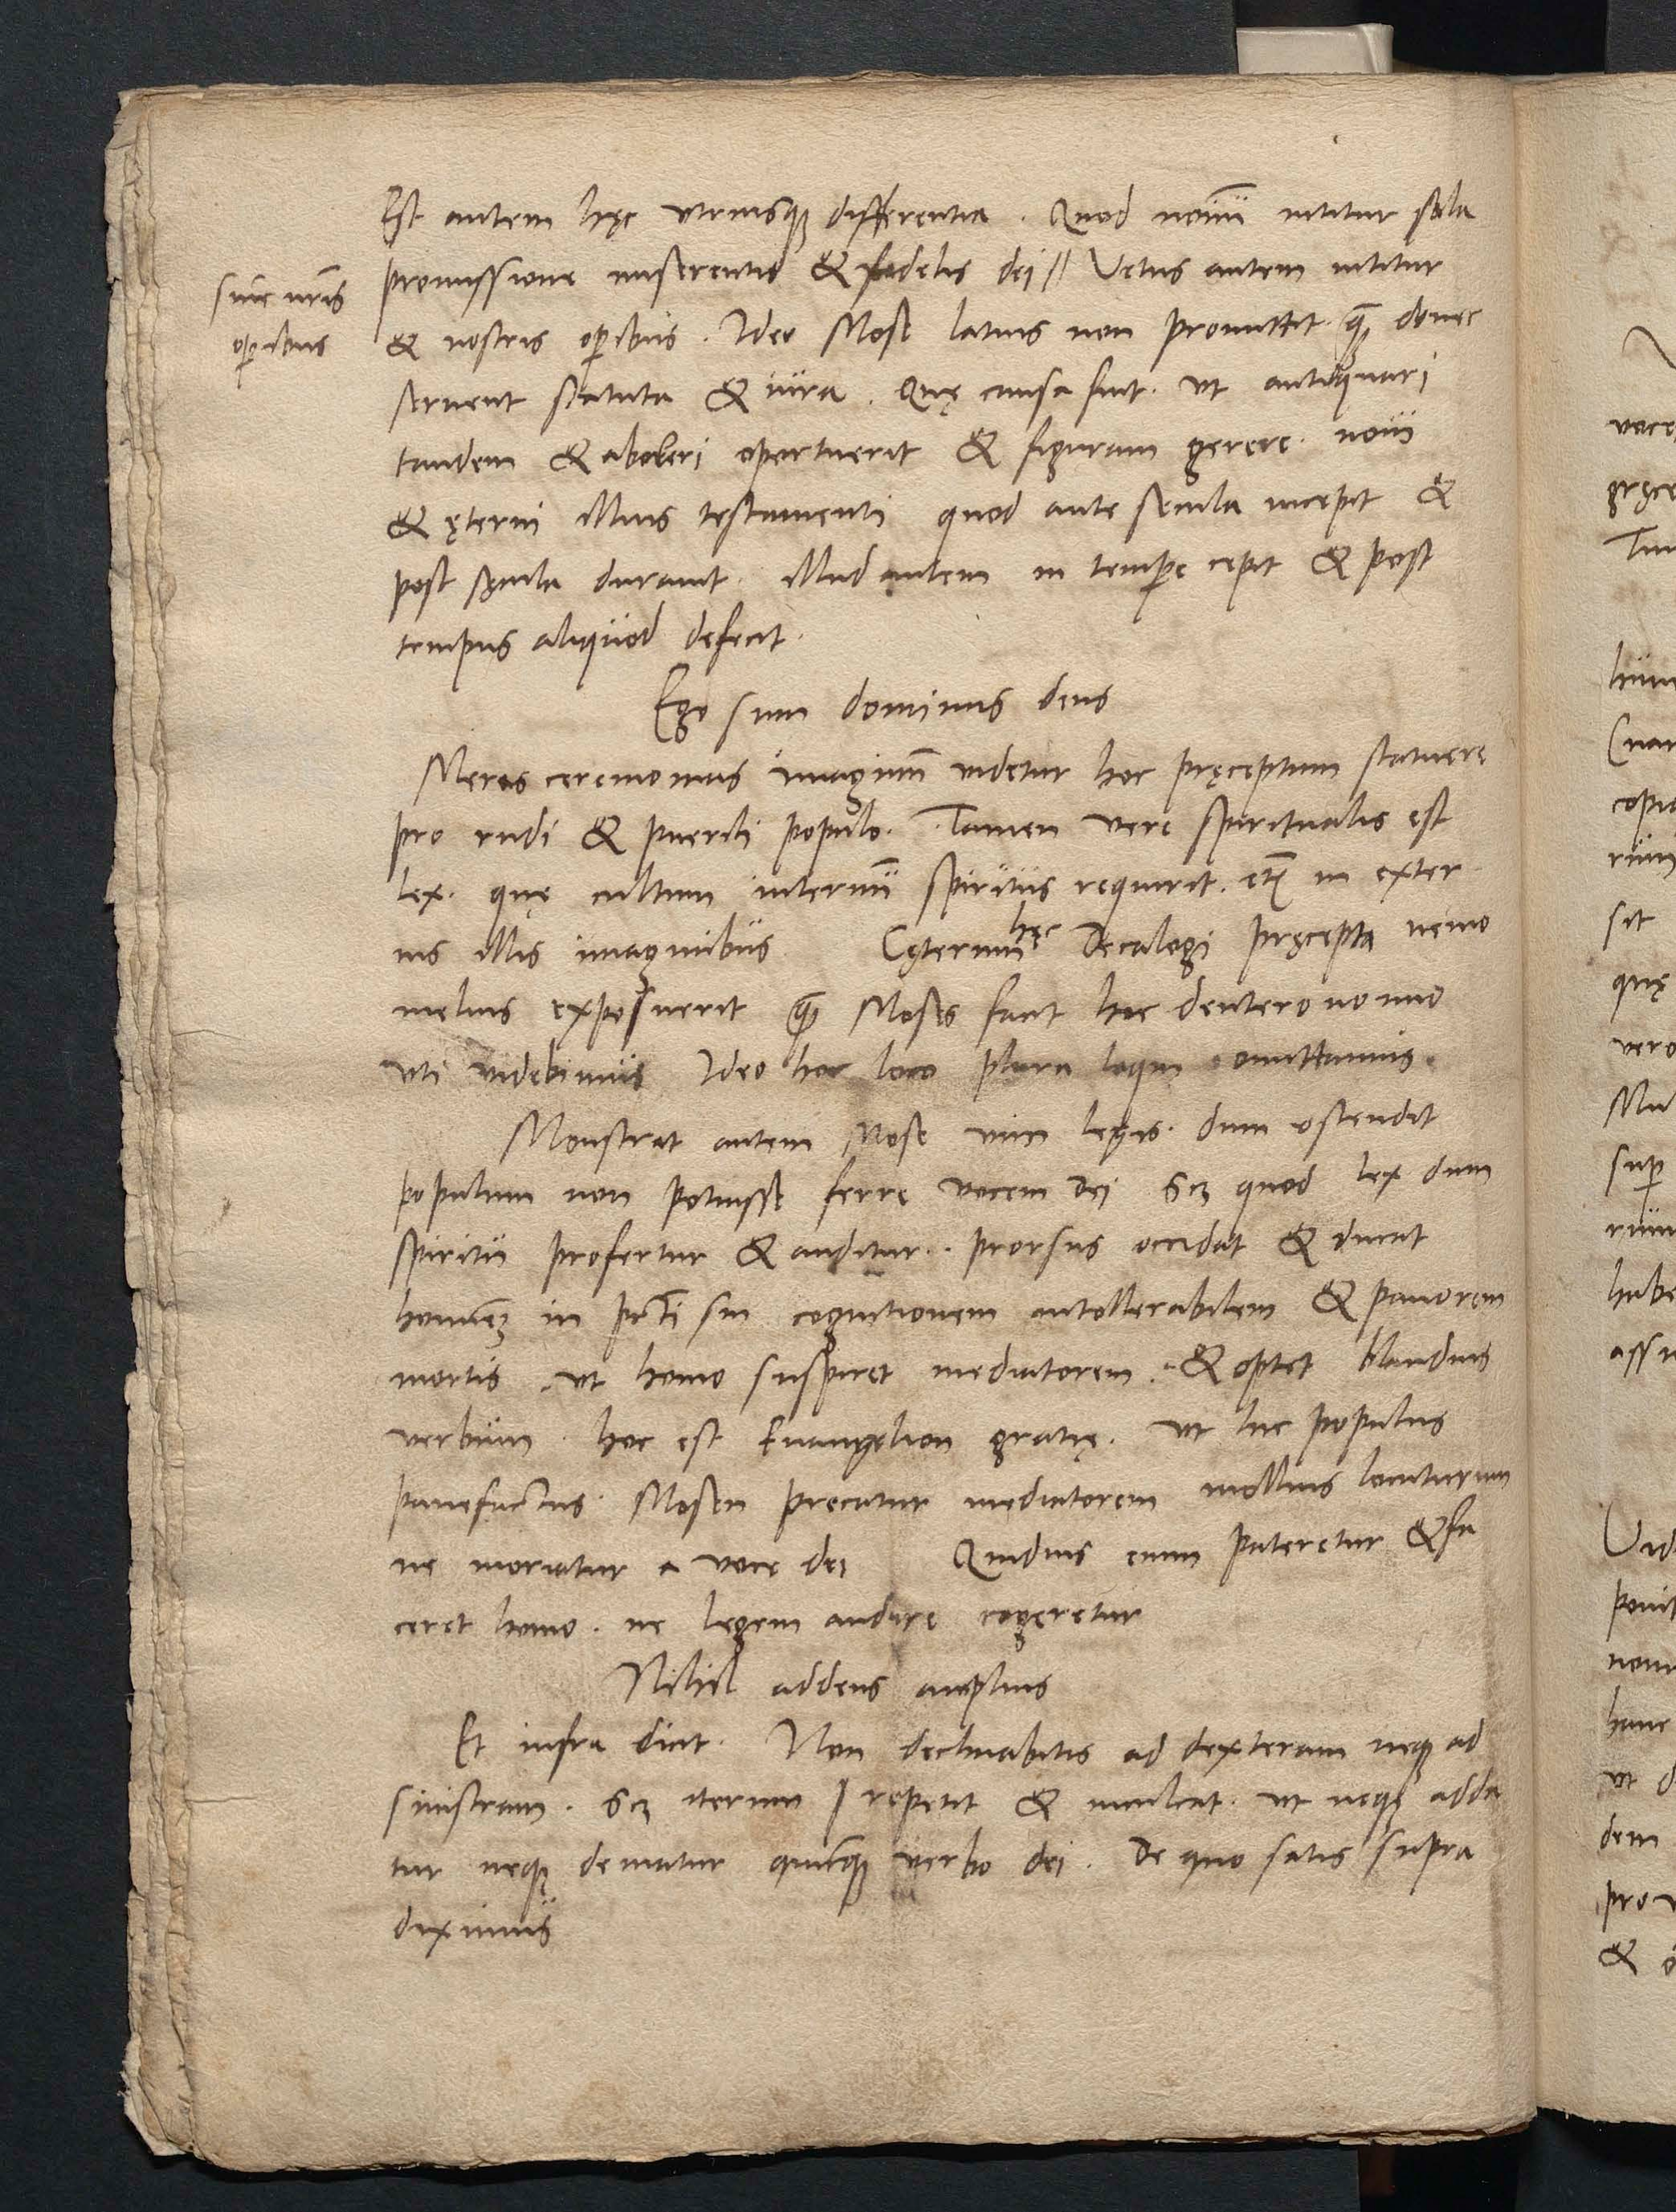 Est autem hęc vtriusqȝ differentia . Quod nouũ nititur sola
promissione miserentis & fidelis dei // Vetus autem nititur
sine nr̃is
oꝑibus
& nostris oꝑibus . Ideo Mose latius non promittit . q̃ȝ donec
seruent statuta & iura . Quę causa fuit . vt antiquari
tandem & aboleri oportuerit & figuram gerere . noui
& ęterni illius testamenti quod ante secula incepit &
post sęcula durauit . illud autem in temꝑe cepit & post
tempus aliquod defecit .
Ego sum dominus deus
Meras ceremonias imaginũ videtur hoc pręceptum statuere
pro rudi & puerili populo . Tamen vere spiritualis est
lex . quę cultum internũ spiritus requirit . etȝ in exter
nis illis imaginibus Cęterum hęc Decalogi pręcepta nemo
melius exposuerit q̃ȝ Moses facit hoc deuteronomio
vti videbimus Ideo hoc loco plura loqui omittamus .
Monstrat autem Mose vim legis . dum ostendit
populum non potuisse ferre vocem Dei scȝ quod lex dum
spiritu profertur & auditur . prorsus occidat & ducat
hominẽȝ in pc̃ti sui cognitionem intollerabilem & pauorem
mortis . vt homo suspiret mediatorem . & optet blandius
verbum . hoc est Euangelion gratię . vt hic populus
pauefactus . Mosen precatur mediatorem mollius locuturum
ne moriatur a voce dei Quiduis enim pateretur & fa
ceret homo . ne legem audire cogeretur
Nihil addens amplius
Et infra dicit . Non declinabitis ad dexteram neqȝ ad
sinistram . scȝ iterum repetit & inculcat . vt neqȝ adda
tur neqȝ dematur quicqȝ verbo dei . De quo satis supra
diximus